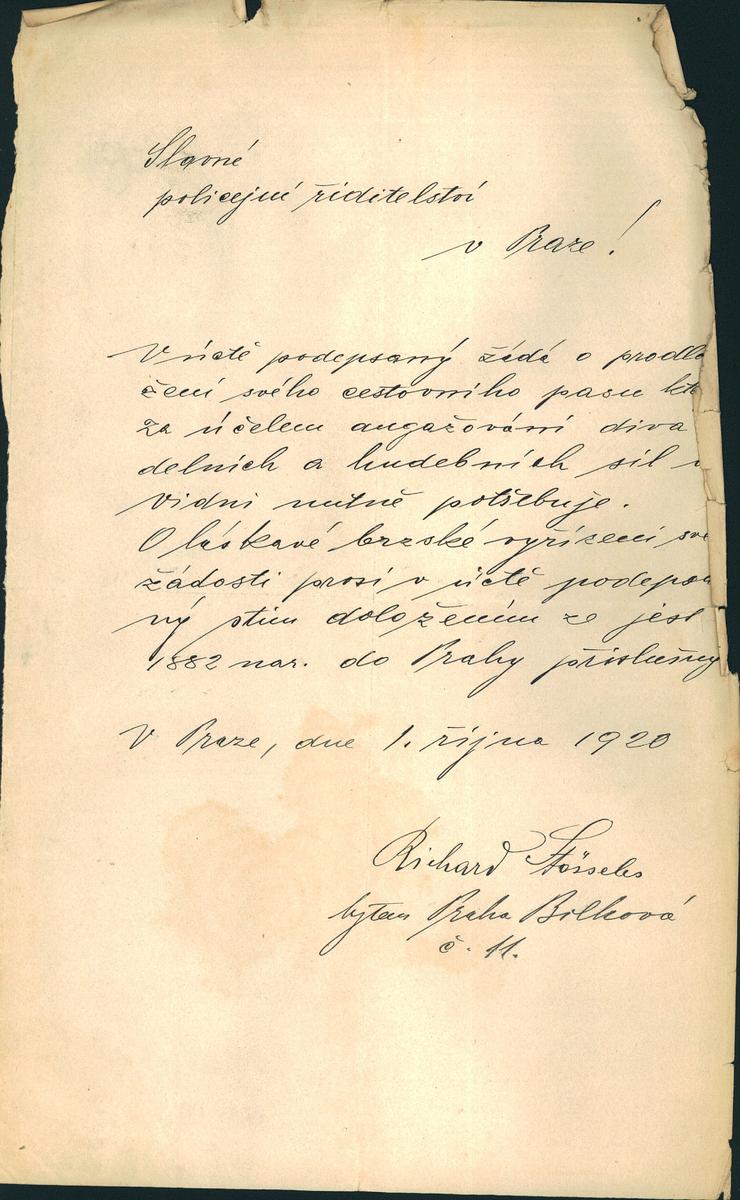 Slavné
policejní řiditelství
v Praze!
V úctě podepsaný žádá o prodlo
žení svého cestovního pasu kte
za účelem angažování diva
delních a hudebních sil v
Vidni nutně potřebuje.
O láskavé brzské vyřízení své
žádosti prosí v úctě podepsa
ný stím doložením ze jest
1882 nar. do Prahy příslušný
V Praze, dne 1. října 1920
Richard
bytem Praha Bilková
č. 11.